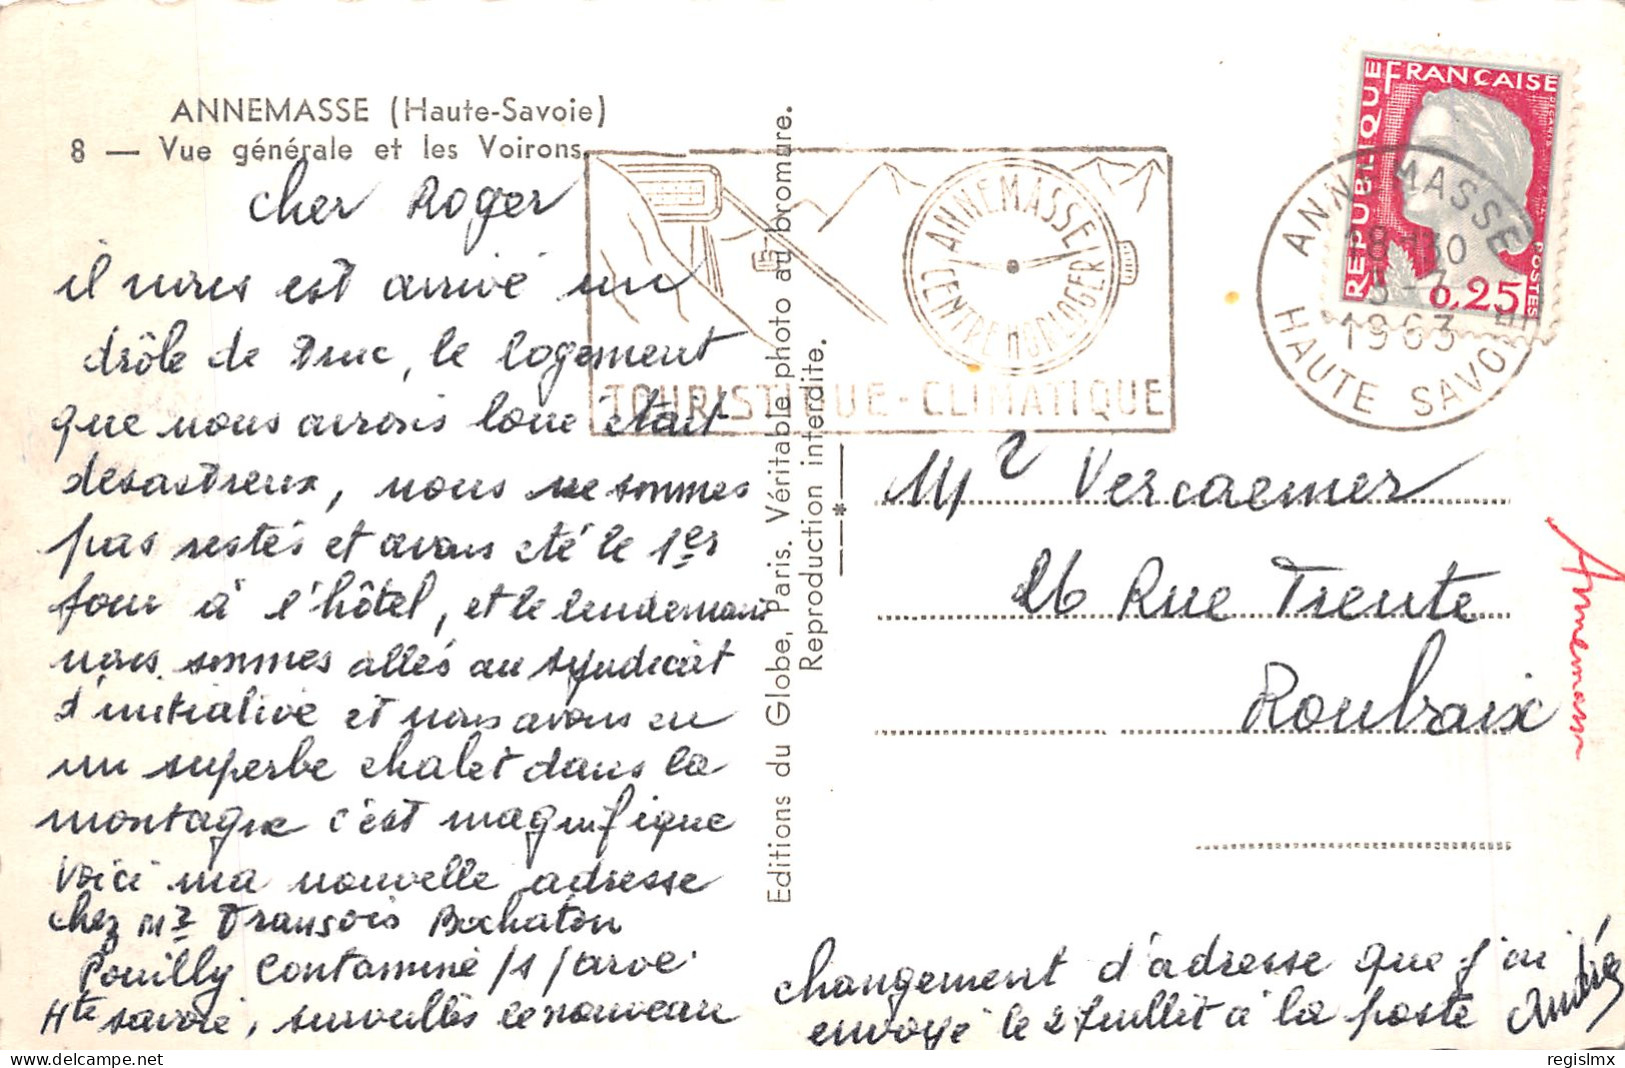 ANNEMASSE (Haute-Savoie)
8 — Vue générale et les Voirons.
cher Roger
il nous est arrivé un
drôle de Truc, le logement
que nous avons loué était
désastreux, nous ne sommes
pas restés et avons été le 1er
jour à l'hôtel, et le lendemain
nous sommes allés au syndicat
d'initiative et nous avons eu
un superbe chalet dans la
montagne c'est magnifique
Voici ma nouvelle adresse
chez Mr François Bochaton
Pouilly Contamine /s/arve
Hte savoie, surveilles le nouveau
changement d'adresse que j'ai
envoyé le 2 Juillet à la poste
André
Editions du Globe, Paris. Véritable photo au bromure.
Reproduction interdite.
—*—
ANNEMASSE
CENTRE HORLOGER
TOURISTIQUE-CLIMATIQUE
ANNEMASSE
18-30
3-7
1963
HAUTE SAVOIE
REPUBLIQUE FRANÇAISE
0,25
POSTES
Mr Vercaemer
26 Rue Trente
Roubaix
Annemasse
regislmx